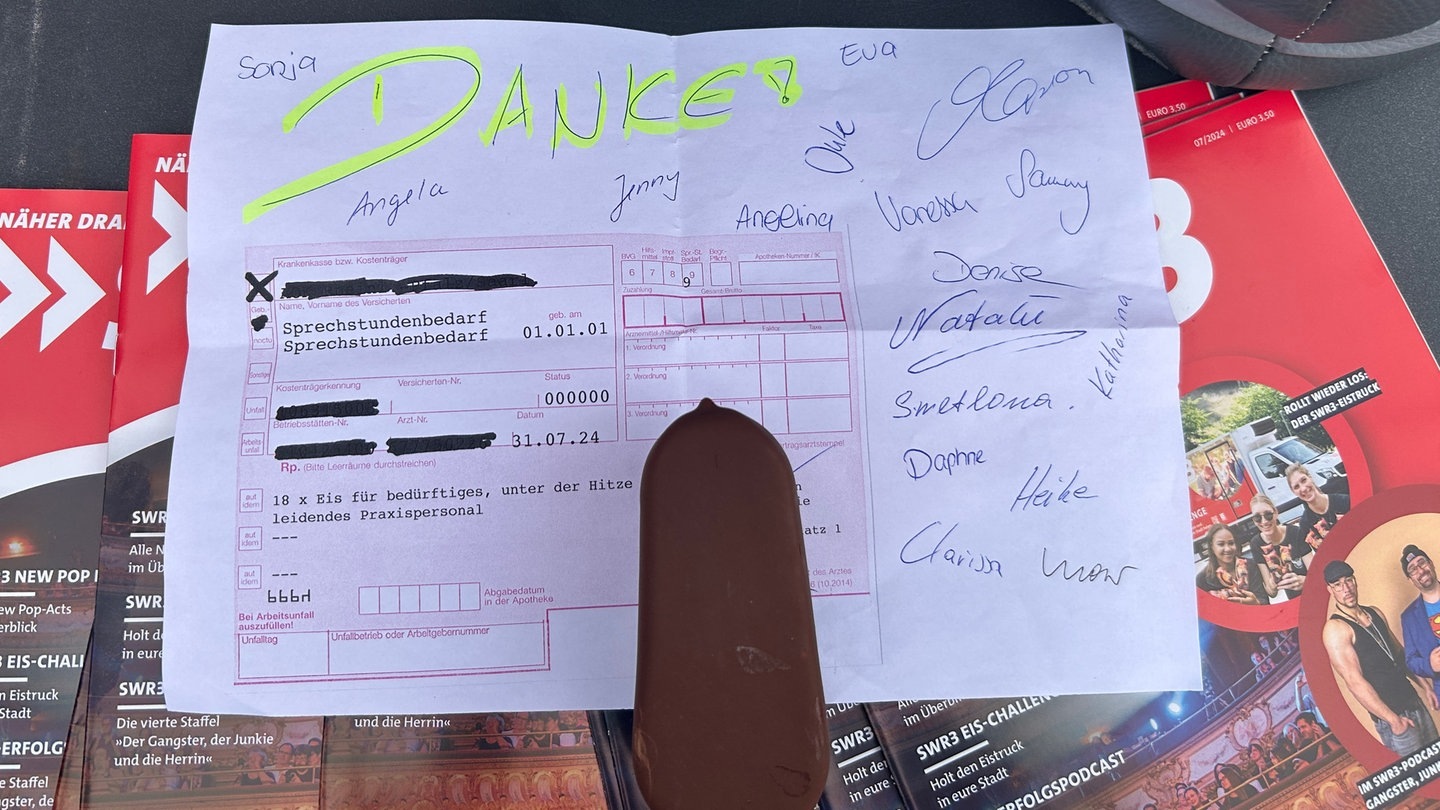 Sonja
DANKE!
Eva
Marion
Angela
Jenny
Angelina
Vanessa
Sammy
Denise
Natalie
Katharina
Daphne
Heike
Clarissa
Krankenkasse bzw. Kostenträger
BVG
Hilfs-mittel
Impf-stoff
Spr.-St. Bedarf
Begr.-Pflicht
Apotheken-Nummer / IK
6 7 8 9
9
Zuzahlung
Gesamt-Brutto
Name, Vorname des Versicherten
geb. am
Sprechstundenbedarf
Sprechstundenbedarf 01.01.01
noctu
Sonstige
Unfall
Arbeits-unfall
Arzneimittel-/Hilfsmittel-Nr.
Faktor
Taxe
1. Verordnung
2. Verordnung
3. Verordnung
Kostenträgerkennung
Versicherten-Nr.
Status
000000
Betriebsstätten-Nr.
Arzt-Nr.
Datum
31.07.24
Rp. (Bitte Leerräume durchstreichen)
aut idem
18 x Eis für bedürftiges, unter der Hitze
leidendes Praxispersonal
aut idem
---
atz 1
aut idem
---
des Arztes
(10.2014)
Bei Arbeitsunfall
auszufüllen!
Abgabedatum
in der Apotheke
Unfalltag
Unfallbetrieb oder Arbeitgebernummer
NÄHER DRA
NÄ
EURO 3,50
07/2024 | EURO 3,50
3
ROLLT WIEDER LOS:
DER SWR3-EISTRUCK
SWR
Alle N
im Üb
3 NEW POP
ew Pop-Acts
erblick
SWR
Holt d
in eure
3 EIS-CHALL
n Eistruck
Stadt
SWR3
Die vierte Staffel
»Der Gangster, der Junkie
und die Herrin«
-ERFOLG
e Staffel
gster, de
und die Herrin«
SWR3
Holt de
in eure
im Über
SWR3 EIS-CHALLEN
Holt den Eistruck
in eure Stadt
ERFOLGSPODCAST
IM SWR3-PODCAST
GANGSTER, JUN